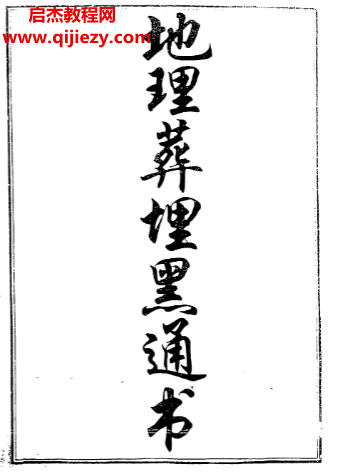 启杰教程网
www.qijiezy.com
地理葬埋黑通书